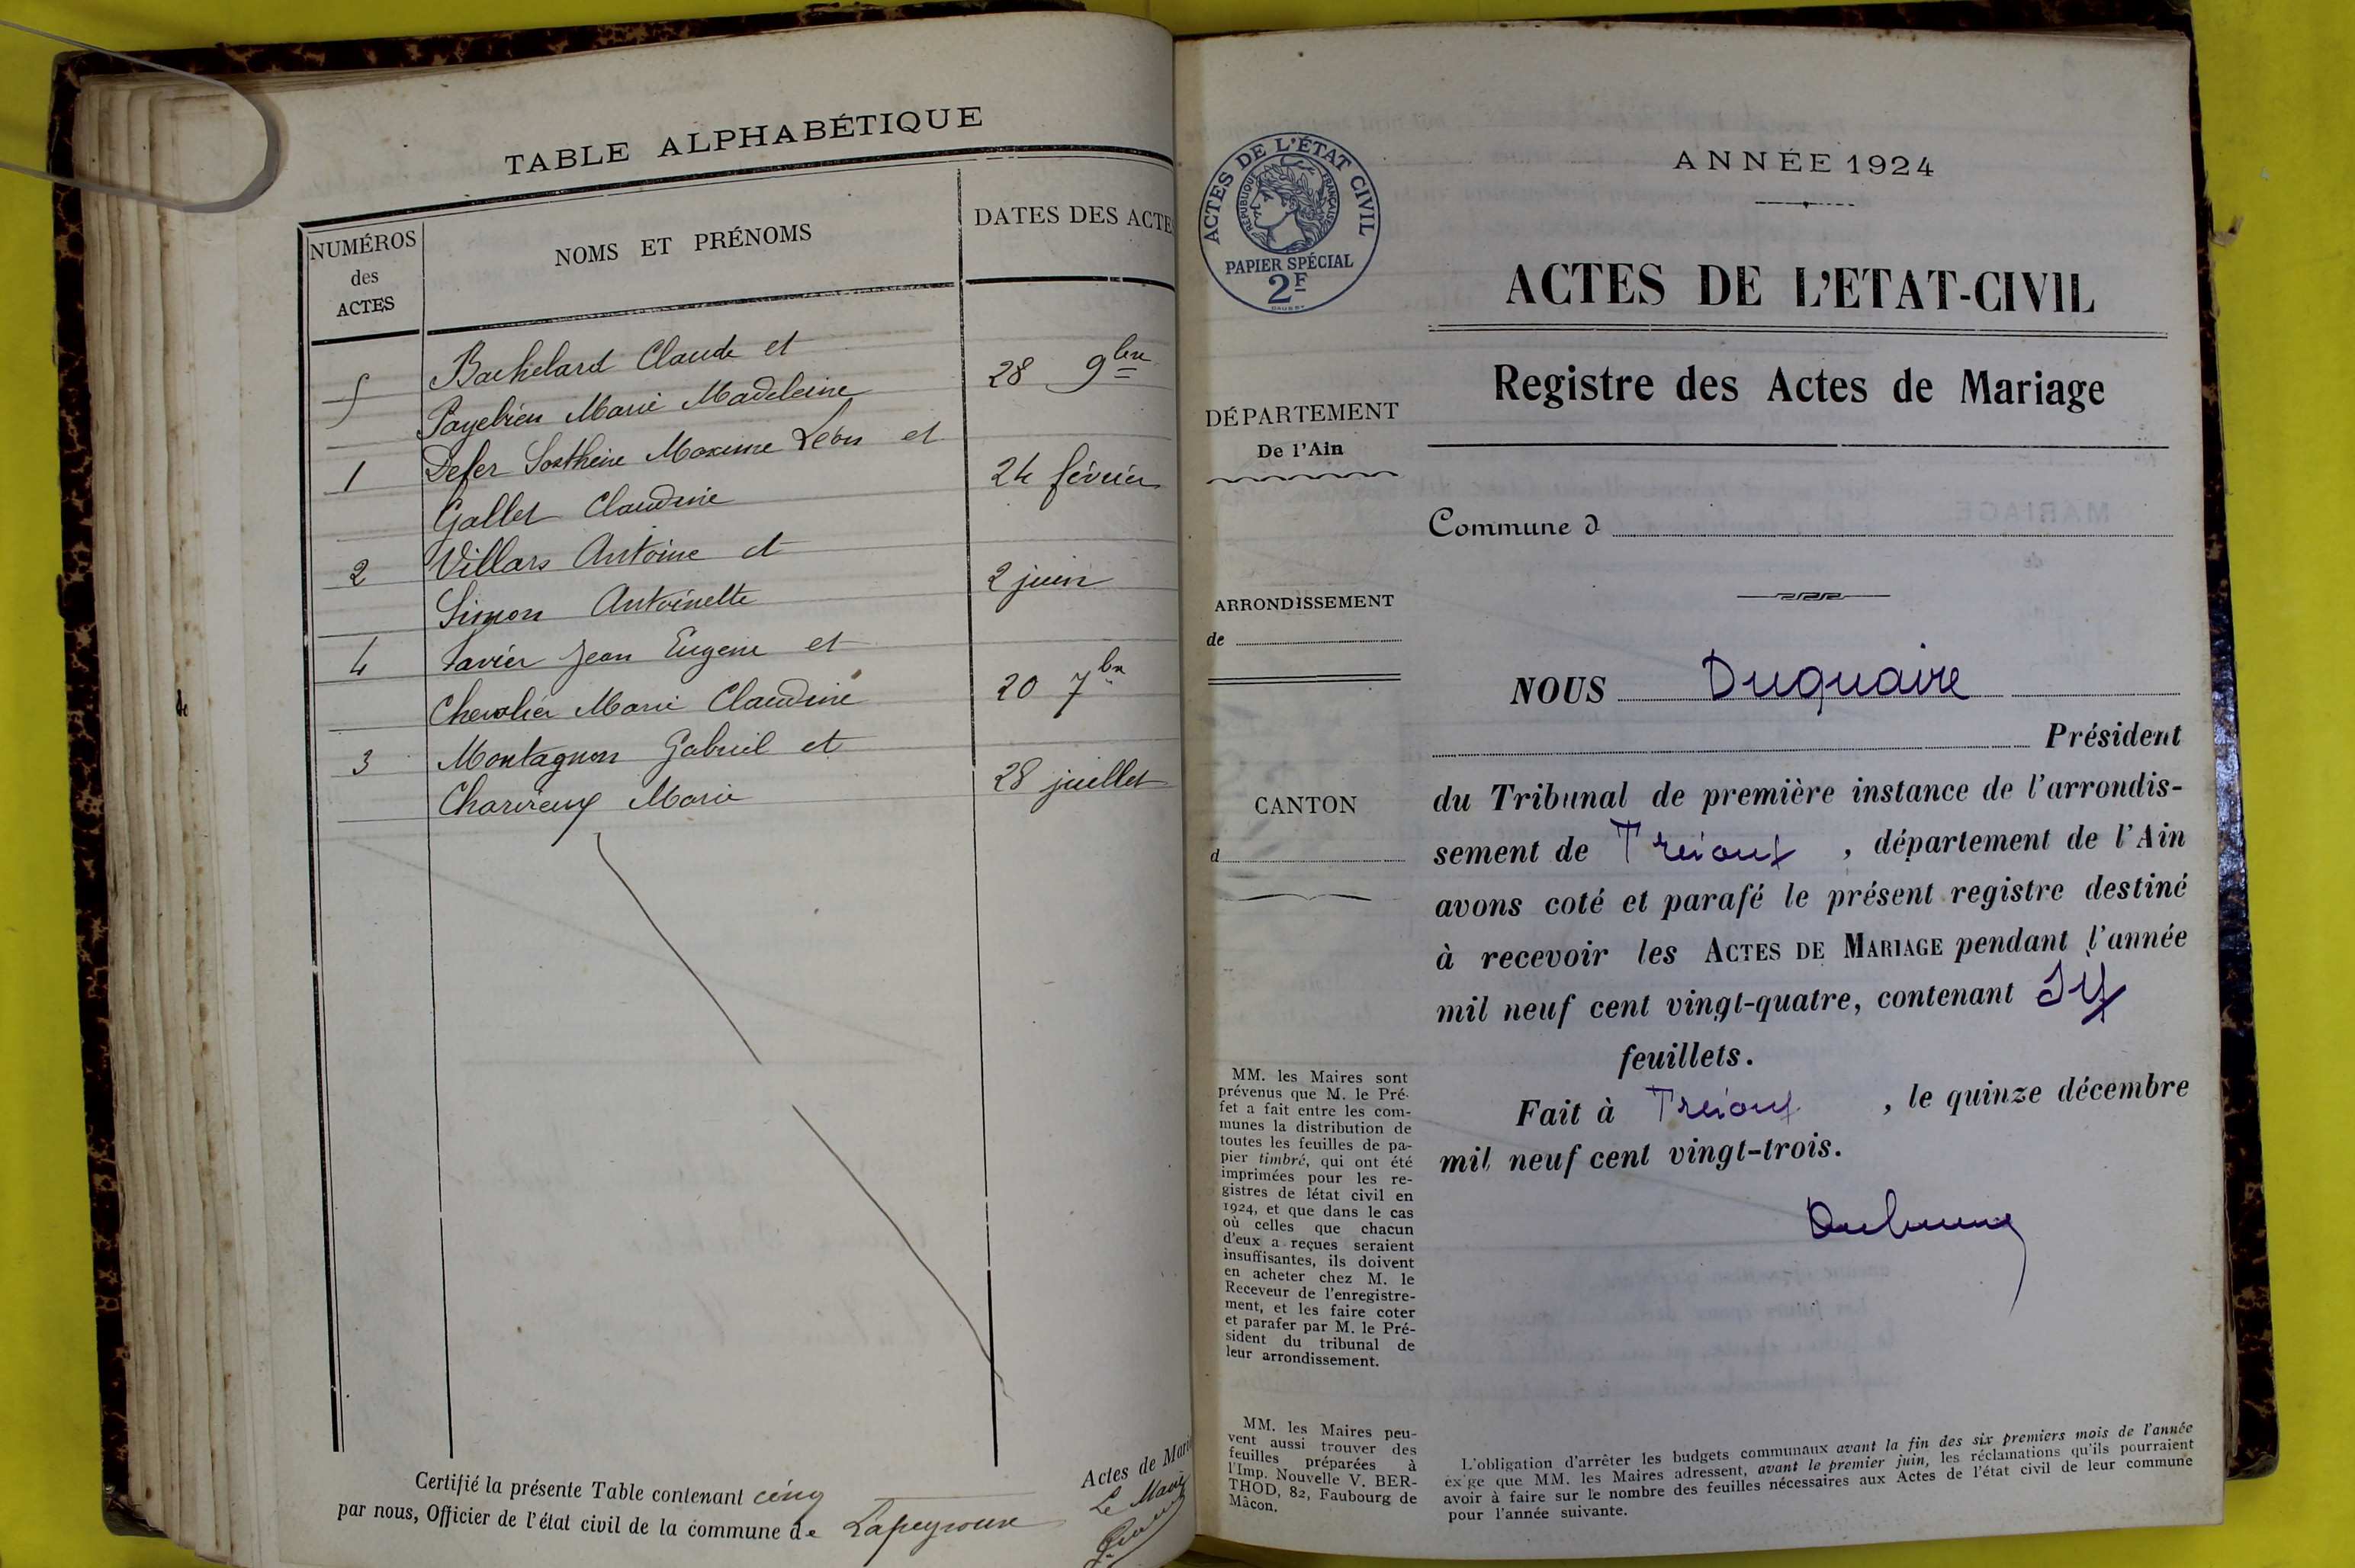 TABLE ALPHABÉTIQUE
NUMÉROS
des
ACTES
NOMS ET PRÉNOMS
DATES DES ACTES
5
Bachelard Claude et
Payebien Marie Madeleine
28 9bre
1
Defer Sosthène Maxime Léon et
Gallet Claudine
24 février
2
Villars Antoine et
Simon Antoinette
2 juin
4
Javier Jean Eugene et
Chevalier Marie Claudine
20 7bre
3
Montagnon Gabriel et
Charvieux Marie
28 juillet
Certifié la présente Table contenant cinq
Actes de Mari
par nous, Officier de l'état civil de la commune de Lapeyrouse
Le Maire
de
ACTES DE L'ÉTAT CIVIL
RÉPUBLIQUE FRANÇAISE
PAPIER SPÉCIAL
2F
ANNÉE 1924
ACTES DE L'ETAT-CIVIL
Registre des Actes de Mariage
DÉPARTEMENT
De l'Ain
Commune d
ARRONDISSEMENT
de
CANTON
d
NOUS Duquaire
Président
du Tribunal de première instance de l'arrondis-
sement de Trévoux, département de l'Ain
avons coté et parafé le présent registre destiné
à recevoir les ACTES DE MARIAGE pendant l'année
mil neuf cent vingt-quatre, contenant
feuillets.
Fait à Trévoux, le quinze décembre
mil neuf cent vingt-trois.
MM. les Maires sont
prévenus que M. le Pré-
fet a fait entre les com-
munes la distribution de
toutes les feuilles de pa-
pier timbré, qui ont été
imprimées pour les re-
gistres de létat civil en
1924, et que dans le cas
où celles que chacun
d'eux a reçues seraient
insuffisantes, ils doivent
en acheter chez M. le
Receveur de l'enregistre-
ment, et les faire coter
et parafer par M. le Pré-
sident du tribunal de
leur arrondissement.
MM. les Maires peu-
vent aussi trouver des
feuilles préparées à
l'Imp. Nouvelle V. BER-
THOD, 82, Faubourg de
Mâcon.
L'obligation d'arrêter les budgets communaux avant la fin des six premiers mois de l'année
exige que MM. les Maires adressent, avant le premier juin, les réclamations qu'ils pourraient
avoir à faire sur le nombre des feuilles nécessaires aux Actes de l'état civil de leur commune
pour l'année suivante.